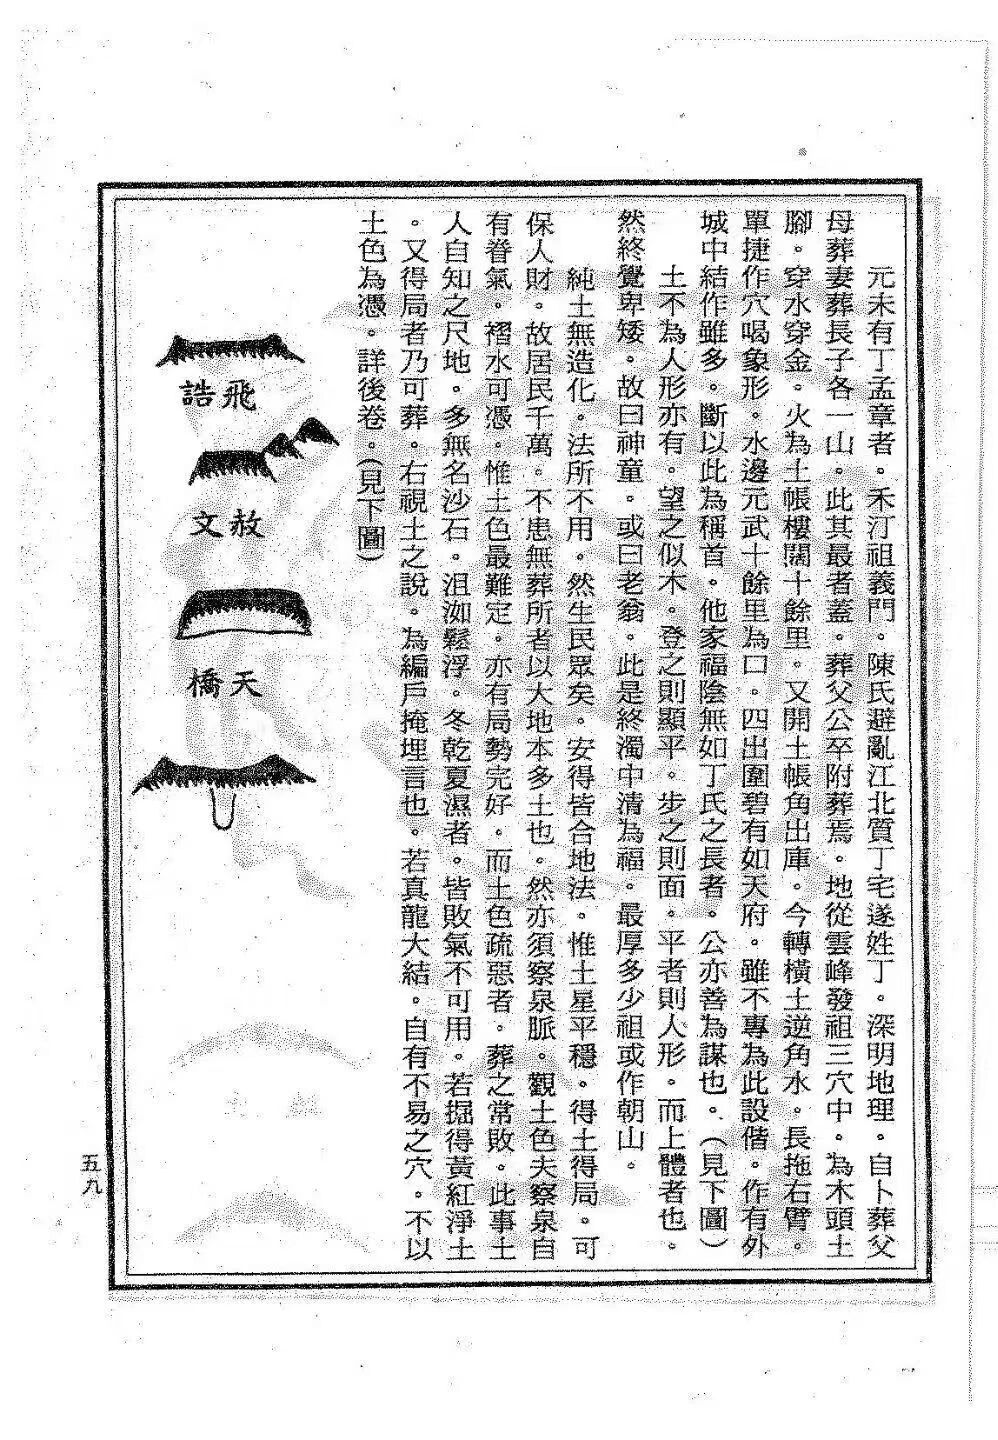 元末有丁孟章者。禾汀祖義門。陳氏避亂江北質丁宅遂姓丁。深明地理。自卜葬父
母葬妻葬長子各一山。此其最者蓋。葬父公卒附葬焉。地從雲峰發祖三穴中。為木頭土
腳。穿水穿金。火為土帳樓闊十餘里。又開土帳角出庫。今轉橫土逆角水。長拖右臂。
單捷作穴喝象形。水邊元武十餘里為口。四出圍碧有如天府。雖不專為此設偕。作有外
城中結作雖多。斷以此為稱首。他家福陰無如丁氏之長者。公亦善為謀也。（見下圖）
土不為人形亦有。望之似木。登之則顯平。步之則面。平者則人形。而上體者也。
然終覺卑矮。故曰神童。或曰老翁。此是終濁中清為福。最厚多少祖或作朝山。
純土無造化。法所不用。然生民眾矣。安得皆合地法。惟土星平穩。得土得局。可
保人財。故居民千萬。不患無葬所者以大地本多土也。然亦須察泉脈。觀土色夫察泉自
有眷氣。褶水可憑。惟土色最難定。亦有局勢完好。而土色疏惡者。葬之常敗。此事土
人自知之尺地。多無名沙石。沮洳鬆浮。冬乾夏濕者。皆敗氣不可用。若掘得黃紅淨土
。又得局者乃可葬。右視土之說。為編戶掩埋言也。若真龍大結。自有不易之穴。不以
土色為憑。詳後卷。（見下圖）
飛誥
赦文
天橋
五九